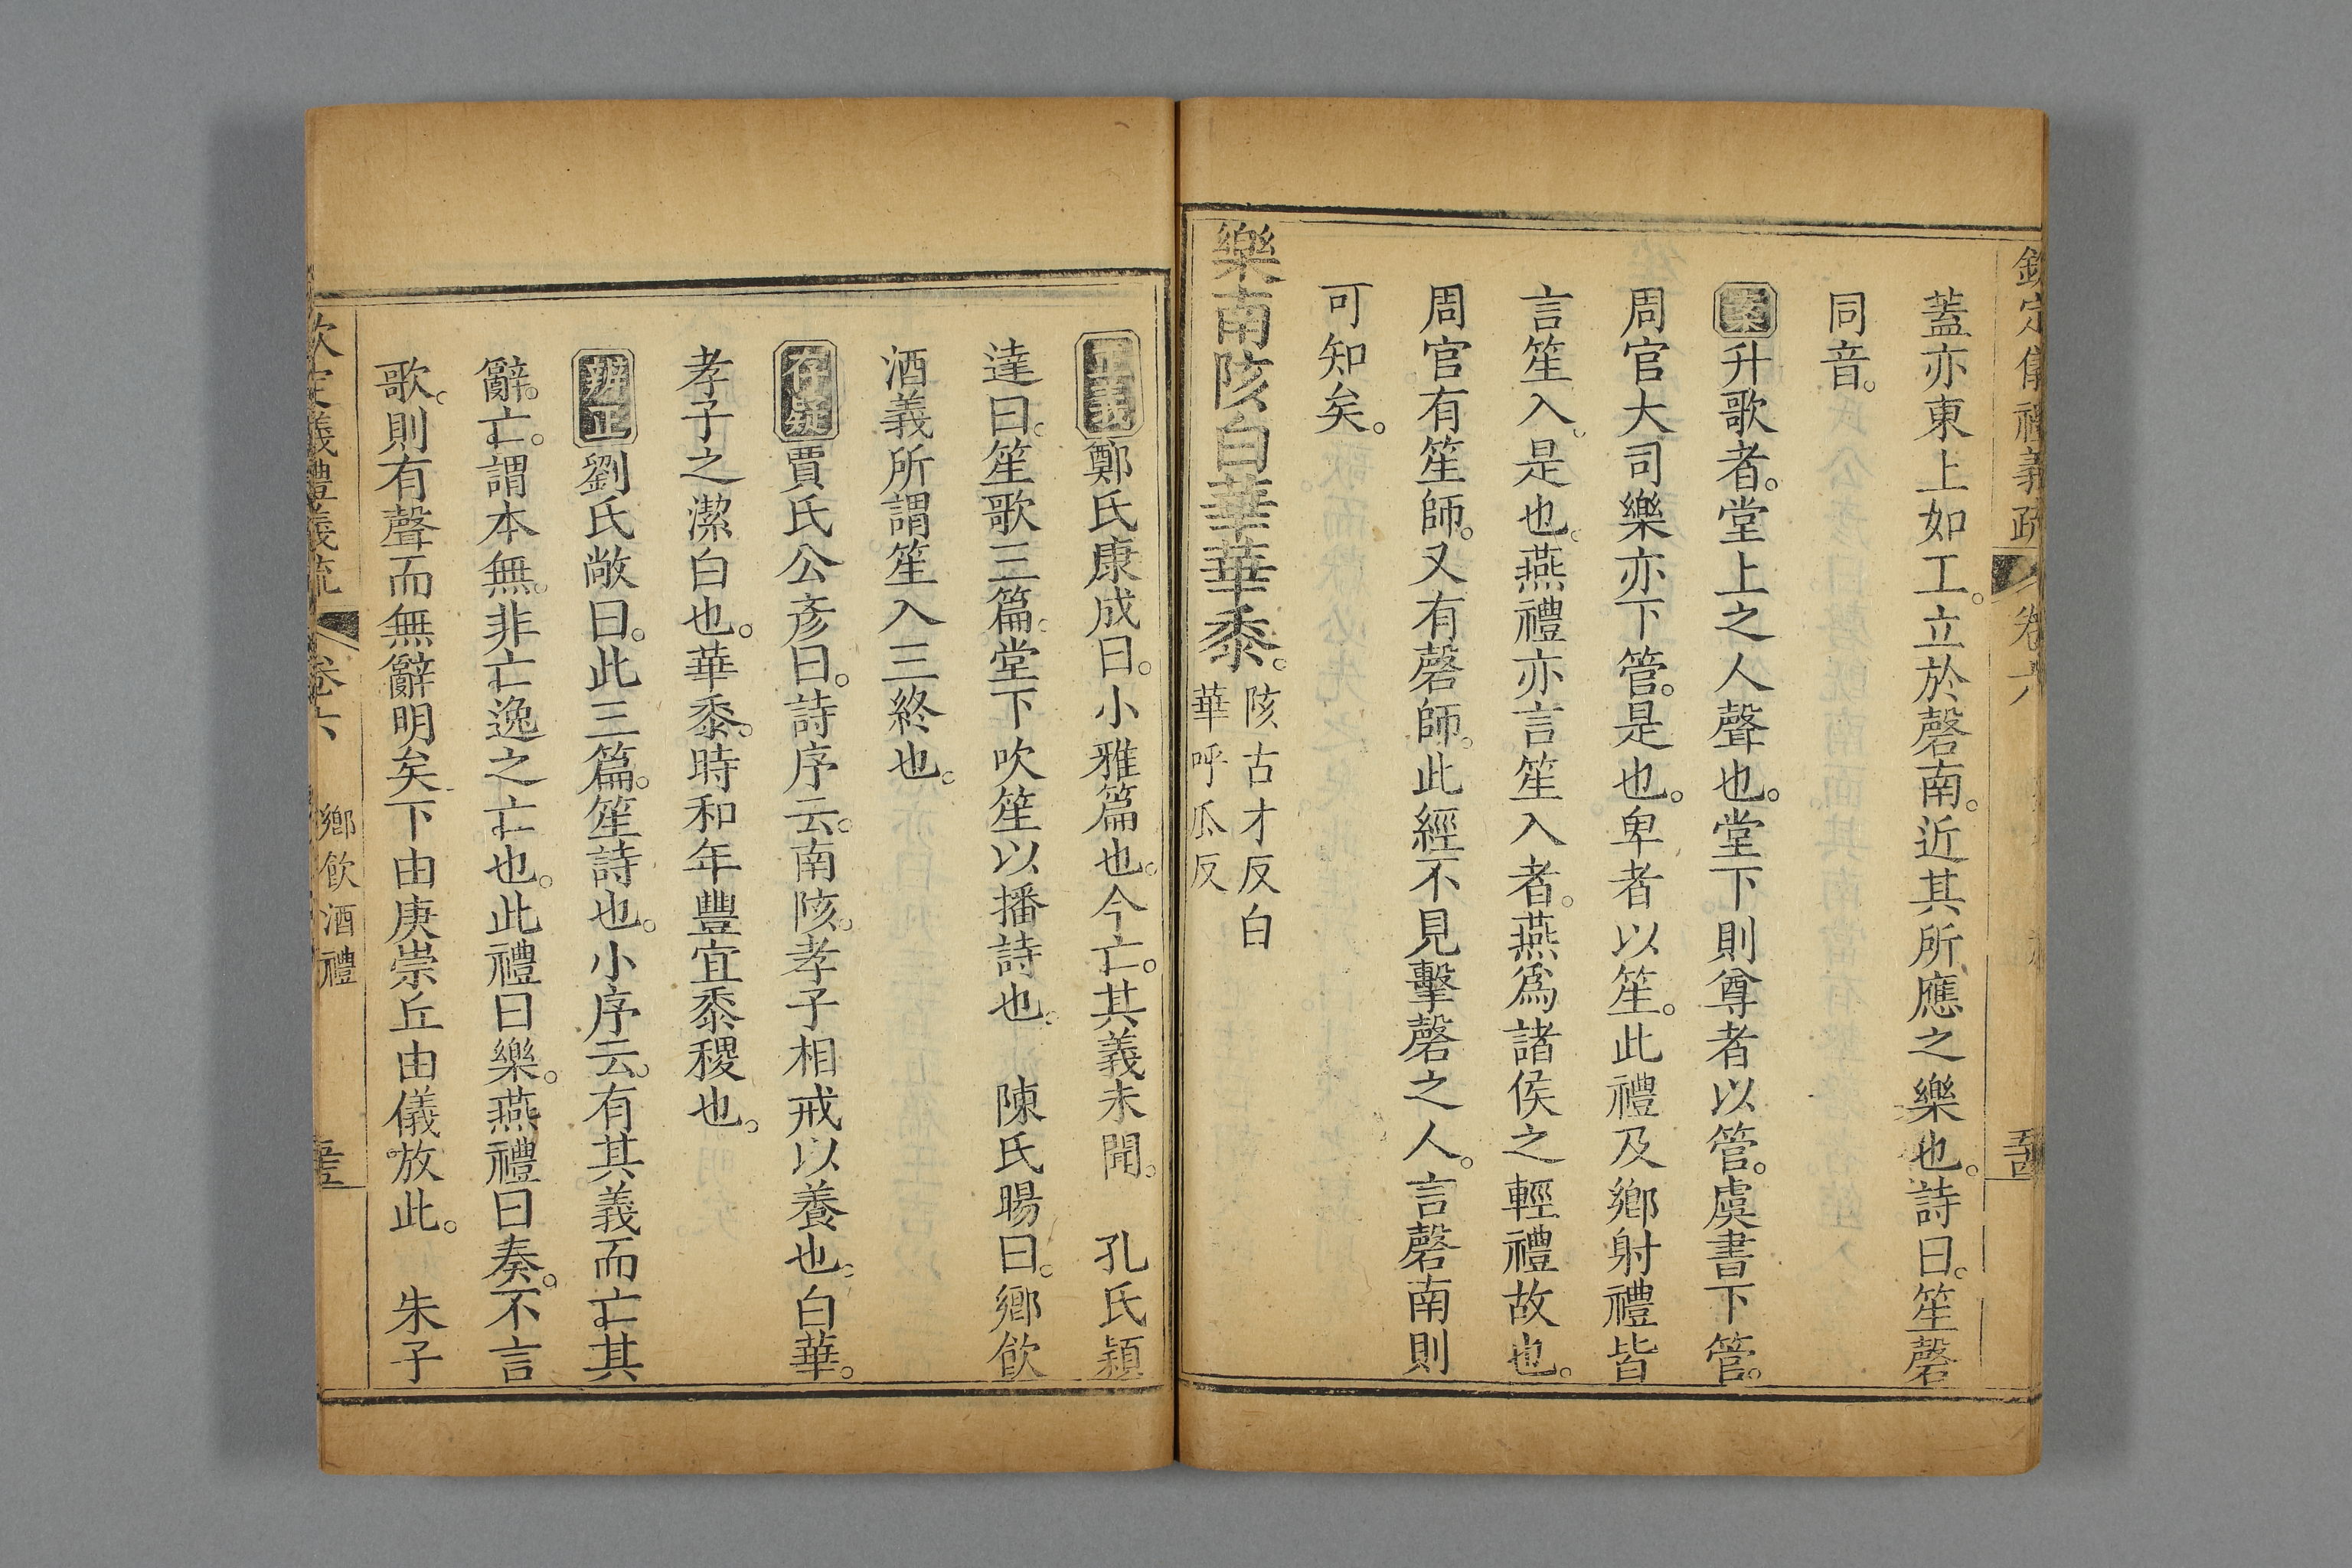 欽定儀禮義疏 卷六 
蓋亦東上如工。立於磬南。近其所應之樂也。詩曰。笙磬
同音。
案升歌者。堂上之人聲也。堂下則尊者以管。虞書下管。
周官大司樂亦下管。是也。卑者以笙。此禮及鄉射禮皆
言笙入。是也。燕禮亦言笙入者。燕爲諸侯之輕禮故也。
周官有笙師。又有磬師。此經不見擊磬之人。言磬南則
可知矣。
樂南陔白華華黍。
陔古才反白
華呼瓜反
正義鄭氏康成曰。小雅篇也。今亡。其義未聞。 孔氏穎
達曰。笙歌三篇。堂下吹笙以播詩也。 陳氏暘曰。鄉飲
酒義所謂笙入三終也。
存疑賈氏公彥曰。詩序云。南陔。孝子相戒以養也。白華。
孝子之潔白也。華黍。時和年豐宜黍稷也。
辨正劉氏敞曰。此三篇。笙詩也。小序云。有其義而亡其
辭。亡。謂本無。非亡逸之亡也。此禮曰樂。燕禮曰奏。不言
歌。則有聲而無辭明矣。下由庚崇丘由儀放此。 朱子
欽定儀禮義疏 卷六 鄉飲酒禮